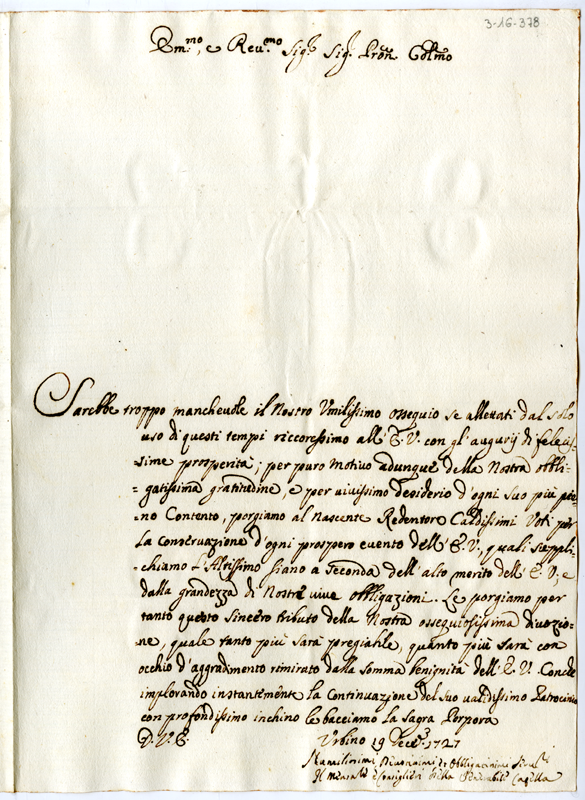 3-16-378
Em.mo, e Reu.mo Sig.r Sig.r Pron Colmo
Sarebbe troppo mancheuole il Nostro Vmilissimo ossequio se allettati dal solo
uso di questi tempi riccoressimo all'E.V. con gl'augurij di felicis-
=sime prosperità; per puro Motiuo adunque della Nostra obbli-
=gatissima gratitudine, e per uiuissimo desiderio d'ogni suo più pie-
=no Contento, porgiamo al Nascente Redentore Caldissimi Voti per
la conseruazione d'ogni prospero euento dell'E.V., quali suppli-
=chiamo l'Altissimo siano a seconda dell'alto merito dell'E.V., e
dalla grandezza di Nostre viue obbligazioni. Le porgiamo per
tanto questo sincero tributo della Nostra ossequiosissima diuozio-
ne, quale tanto più sarà pregiabile, quanto più sarà con
occhio d'aggradimento rimirato dalla somma benignità dell'E.V. Con che
implorando instantemente la Continuazione del suo ualidissimo Patrocinio
con profondissimo inchino le bacciamo la Sagra Porpora
D.V.E.
Vrbino 19 Decre. 1727
Humilissimi Diuotissimi et Obligatissimi Seru.ti
Il e Consiglieri della Venerabile Capella